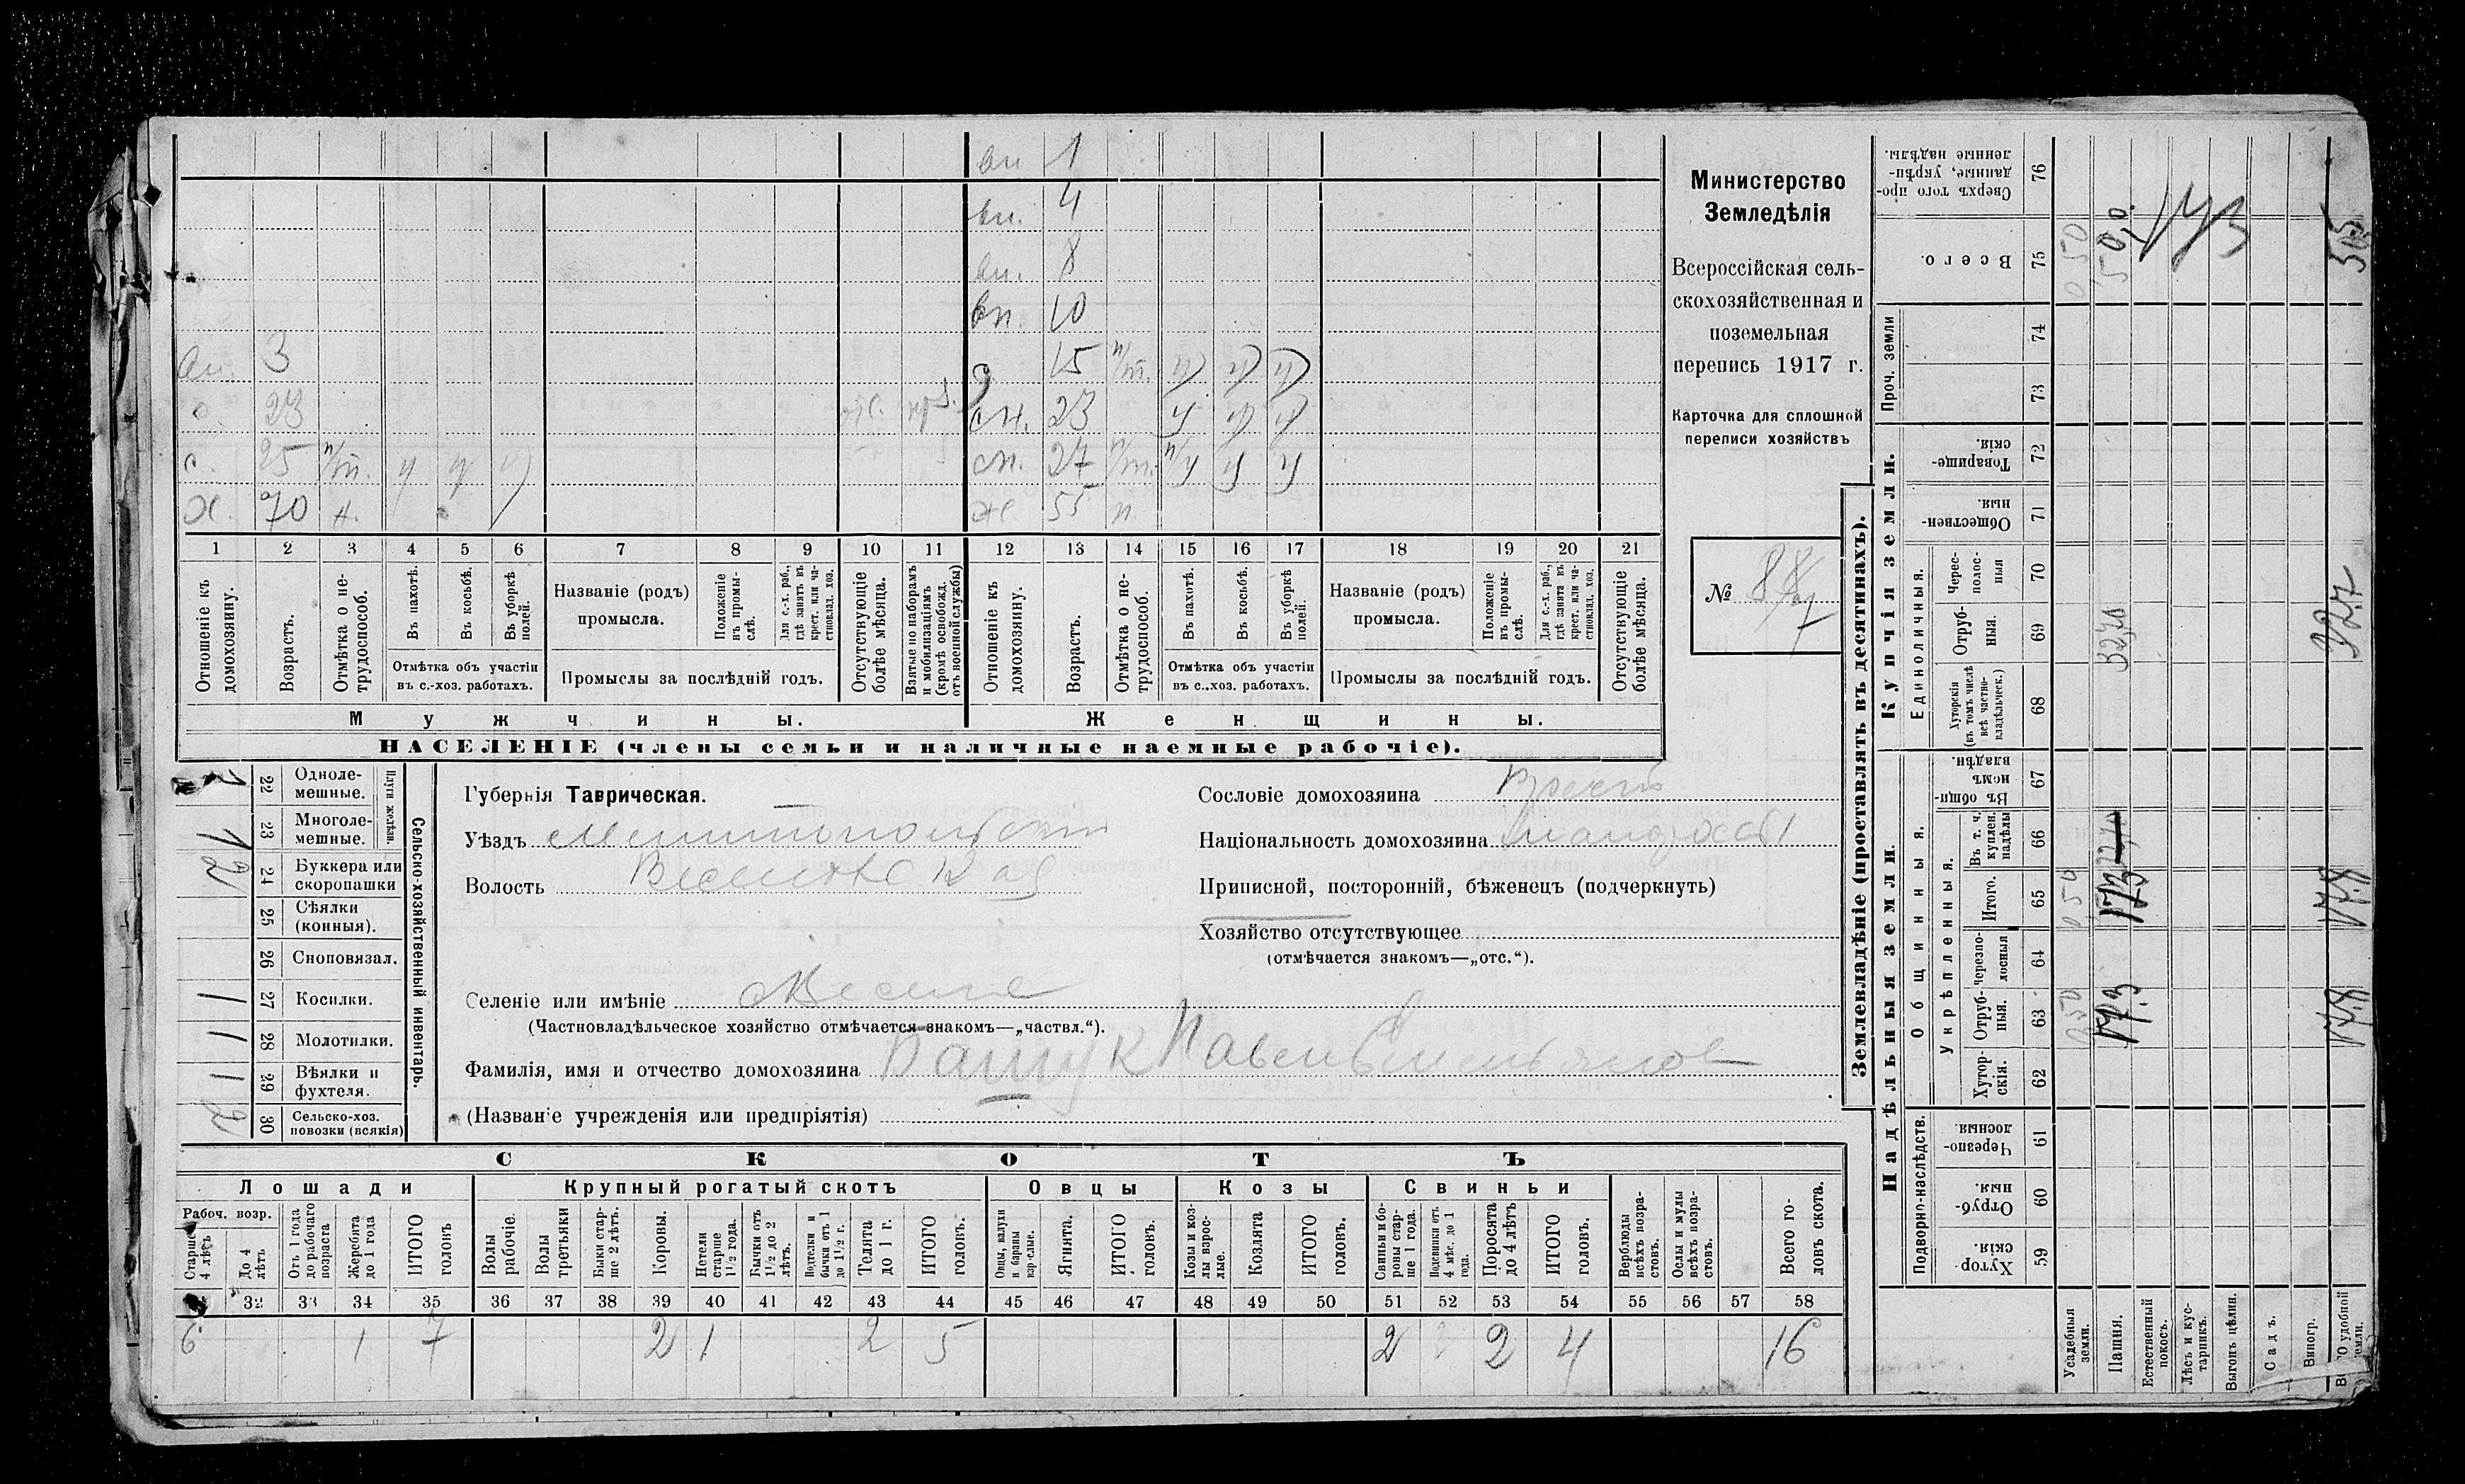 вн 1
вн. 4
вн. 8
вн. 10
вн. 3 15 п/т.
с. 23 отс. сн. 23
с. 25 п/т. сн. 27 п/т. п/
х. 70 н. ж 55 п.
1 2 3 4 5 6 7 8 9 10 11 12 13 14 15 16 17 18 19 20 21
Отношеніе къ домохозяину.
Возрастъ.
Отмѣтка о не-трудоспособ.
Въ пахотѣ.
Въ косьбѣ.
Въ уборкѣ полей.
Отмѣтка объ участіи въ с.-хоз. работахъ.
Названіе (родъ) промысла.
Положеніе въ промы-слѣ.
Для с.-х. раб., гдѣ занятъ въ крест. или ча-стновлад. хоз.
Промыслы за послѣдній годъ.
Отсутствующіе болѣе мѣсяца.
Взятые по наборамъ и мобилизаціямъ (кромѣ освобожд. отъ военной службы)
Отношеніе къ домохозяину.
Возрастъ.
Отмѣтка о не-трудоспособ.
Въ пахотѣ.
Въ косьбѣ.
Въ уборкѣ полей.
Отмѣтка объ участіи въ с.-хоз. работахъ.
Названіе (родъ) промысла.
Положеніе въ промы-слѣ.
Для с.-х. раб., гдѣ занята въ крест. или ча-стновлад. хоз.
Промыслы за послѣдній годъ.
Отсутствующіе болѣе мѣсяца.
Мужчины.
Женщины.
НАСЕЛЕНІЕ (члены семьи и наличные наемные рабочіе).
Министерство
Земледѣлія
Всероссійская сель-
скохозяйственная и
поземельная
перепись 1917 г.
Карточка для сплошной
переписи хозяйствъ
№ 88
Сельско-хозяйственный инвентарь.
Плуги желѣзн.
1 22 Одноле-мешные.
1 23 Многоле-мешные.
2 24 Буккера или скоропашки
25 Сѣялки (конныя).
26 Сноповязал.
1 27 Косилки.
1 28 Молотилки.
1 29 Вѣялки и фухтеля.
2 30 Сельско-хоз. повозки (всякія)
Губернія Таврическая.
Уѣздъ Мелитопольскій
Волость Веселовская
Селеніе или имѣніе Веселе
(Частновладѣльческое хозяйство отмѣчается знакомъ—„частвл.“).
Фамилія, имя и отчество домохозяина Пащук Павел Емельянов
(Названіе учрежденія или предпріятія)
Сословіе домохозяина
Національность домохозяина малоросс
Приписной, посторонній, бѣженецъ (подчеркнуть)
Хозяйство отсутствующее
(отмѣчается знакомъ—„отс.“).
СКОТЪ
Лошади
Крупный рогатый скотъ
Овцы
Козы
Свиньи
Рабоч. возр.
Старше 4 лѣтъ
До 4 лѣтъ
Отъ 1 года до рабочаго возраста
Жеребята до 1 года
ИТОГО головъ
Волы рабочіе.
Волы третьяки
Быки стар-ше 2 лѣтъ.
Коровы.
Нетели старше 1½ года.
Бычки отъ 1½ до 2 лѣтъ.
Подтелки и бычки отъ 1 до 1½ г.
Телята до 1 г.
ИТОГО головъ.
Овцы, валухи и бараны взрослые.
Ягнята.
ИТОГО головъ.
Козы и коз-лы взрос-лые.
Козлята
ИТОГО головъ.
Свиньи и бо-ровы стар-ше 1 года.
Подсвинки отъ 4 мѣс. до 1 года.
Поросята до 4 лѣтъ
ИТОГО головъ.
Верблюды всѣхъ возра-стовъ.
Ослы и мулы всѣхъ возра-стовъ.
Всего го-ловъ скота.
32 33 34 35 36 37 38 39 40 41 42 43 44 45 46 47 48 49 50 51 52 53 54 55 56 57 58
6 1 7 2 1 2 5 2 2 4 16
Землевладѣніе (проставлять въ десятинахъ).
Купчія земли.
Надѣльныя земли.
Сверхъ того про-данные, укрѣп-ленные надѣлы. 76
Всего. 75 0,50 50,0. 50,5
Проч. земли
74
73
Товарище-скія. 72
Обществен-ныя. 71
Единоличныя.
Черес-полос-ныя 70
Отруб-ныя. 69 32,7
Хуторскія (въ томъ числѣ всѣ частно-владѣльчес.) 68
Общинныя.
Въ общин-номъ владѣн. 67
Укрѣпленныя.
Въ т. ч. куплен. надѣлы 66
Итого. 65 0,50 17,3 17.8
Черезпо-лосныя 64
Отруб-ныя. 63 0,50 17,3 17.8
Хутор-скія. 62
Подворно-наслѣдств.
Черезпо-лосныя. 61
Отруб-ныя. 60
Хутор-скія. 59
Усадебныя земли.
Пашня.
Естественный покосъ.
Лѣсъ и кус-тарникъ.
Выгонъ цѣлин.
Садъ.
Виногр.